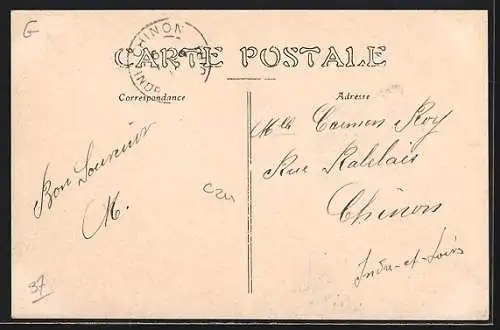 G
CHINON
CARTE POSTALE
Correspondance
Adresse
Bon Souvenir
M.
Mlle Carmen Roy
Rue Rabelais
Chinon
Indre-et-Loire
C24
37